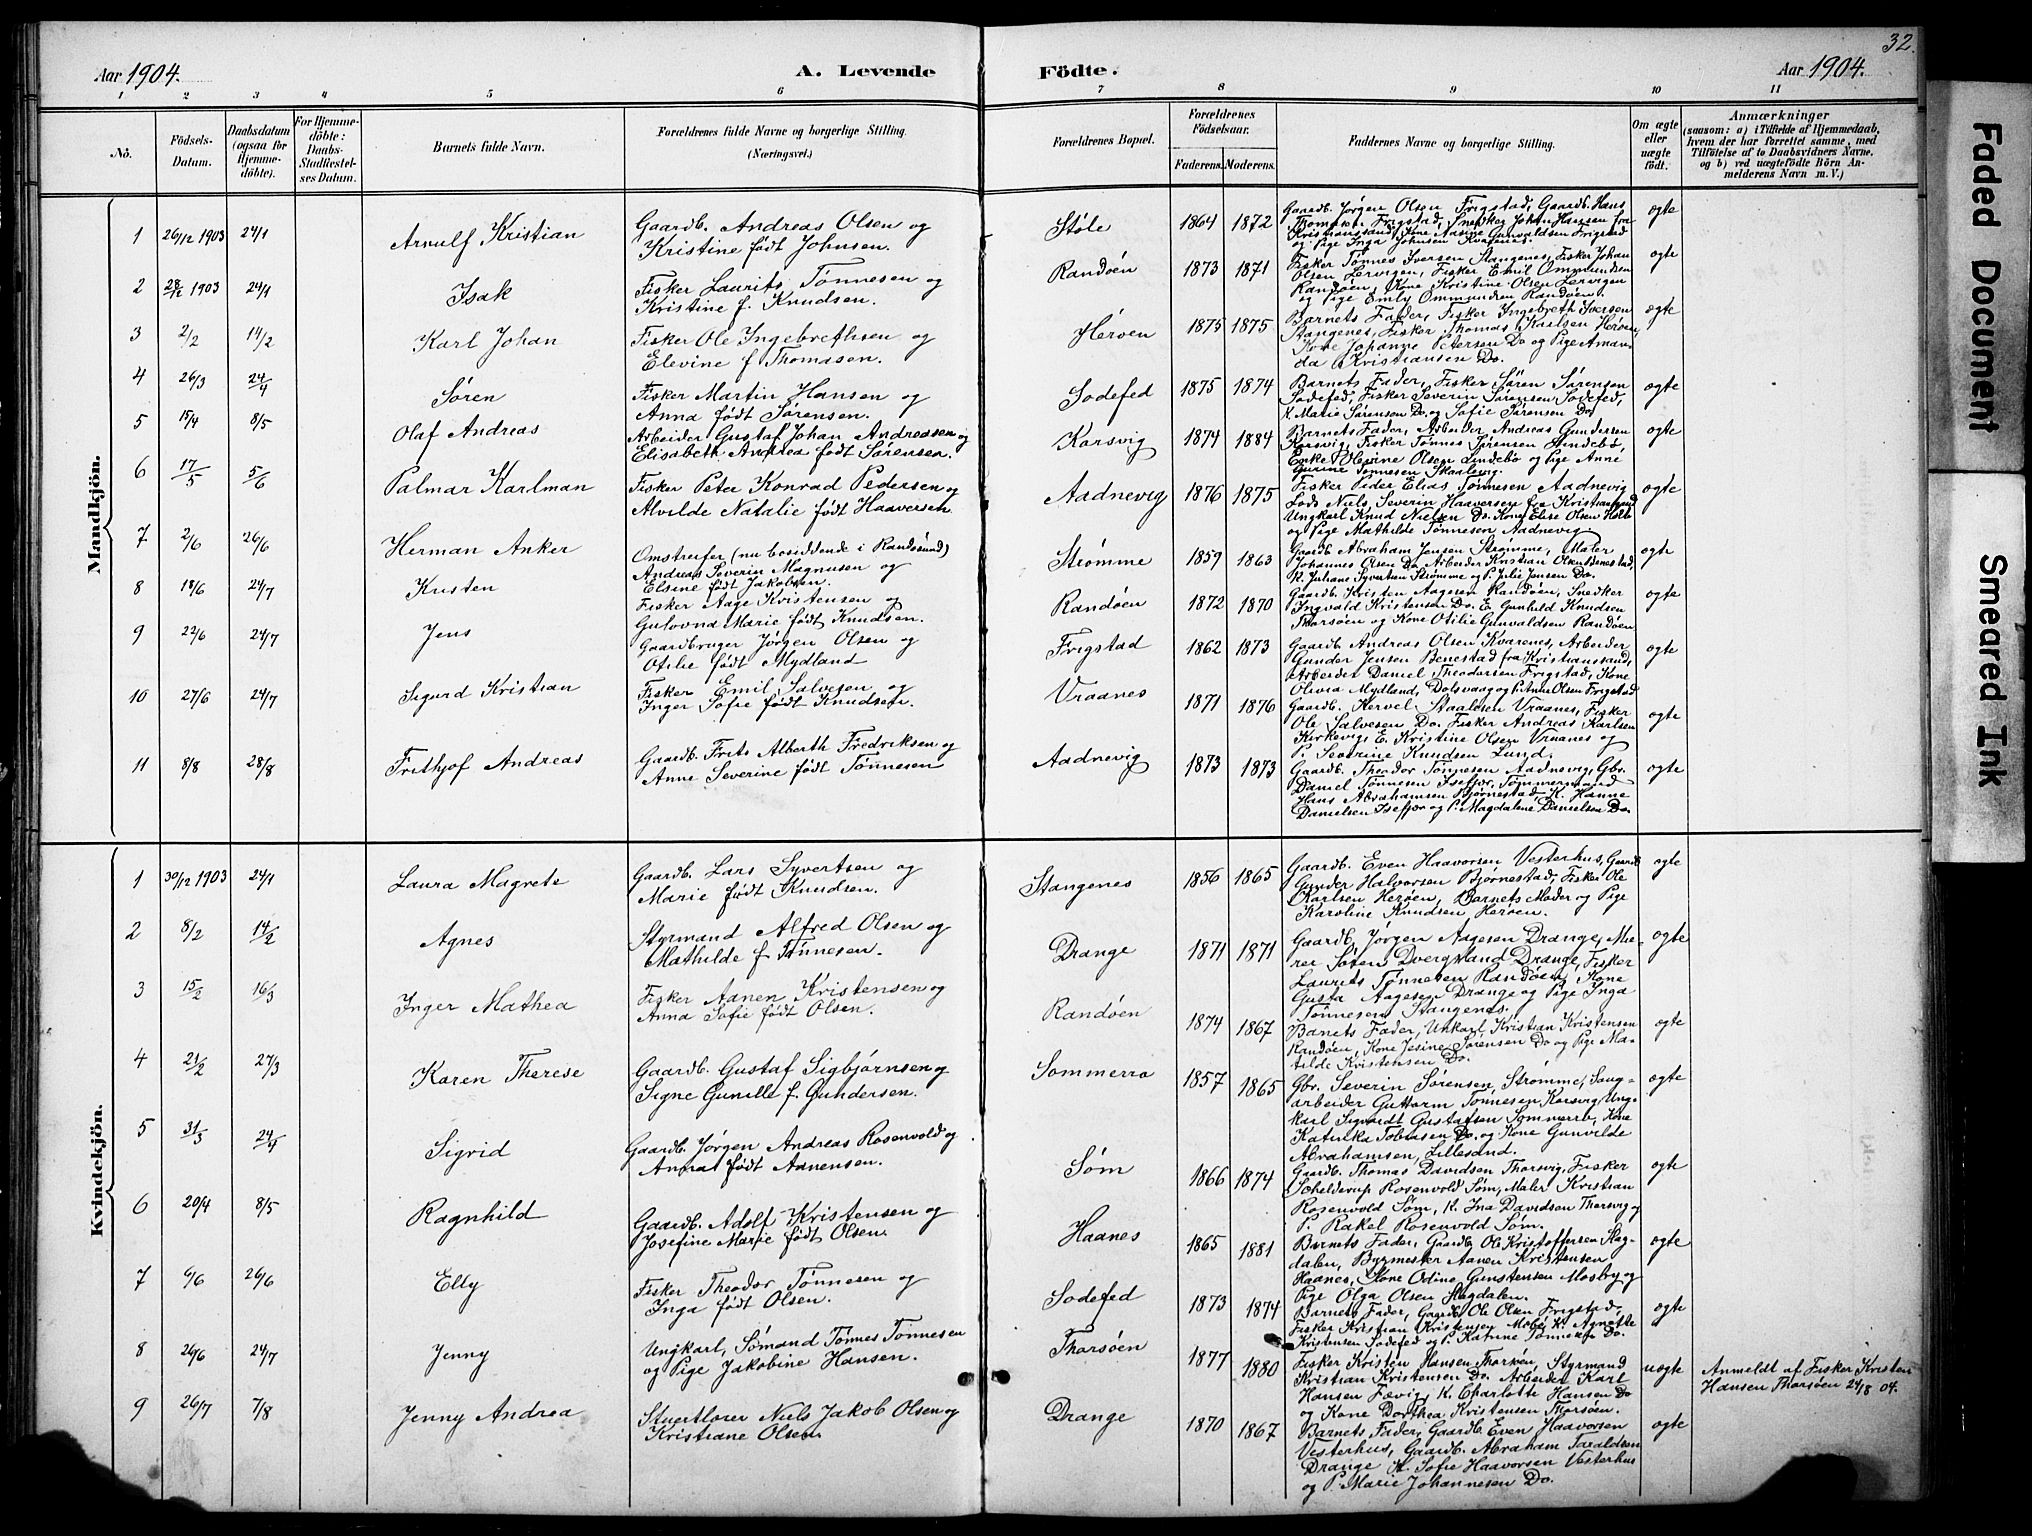 32.
Aar 1904. A. Levende Födte. Aar 1904.
1 2 3 4 5 6 7 8 9 10 11
No. Födsels-Datum. Daabsdatum (ogsaa for Hjemmedöbte). For Hjemmedöbte: Daabs-Stadfæstelses Datum. Barnets fulde Navn. Forældrenes fulde Navne og borgerlige Stilling. (Næringsvei.) Forældrenes Bopæl. Forældrenes Födselsaar. Faderens. Moderens. Faddernes Navne og borgerlige Stilling. Om ægte eller uægte födt. Anmærkninger (saasom: a) i Tilfælde af Hjemmedaab, hvem der har forrettet samme, med Tilföielse af to Daabsvidners Navne, og b) ved uægtefödte Börn Anmelderens Navn m. V.)
Mandkjön.
1 26/12 1903 24/1 Arnulf Kristian Gaardb. Andreas Olsen og Støle 1864 1872 Gaardb. Jørgen Olsen Frigstad, Gaardb. Hans ægte
Kristine født Johnsen. Frigstad, Snedker Johan Hansen fra
Kristianssand, Kone Aasine Gunvaldsen Frigstad
og Pige Inga Johnsen
2 28/12 1903 24/1 Isak Fisker Laurits Tønnesen og Randøen 1873 1871 Fisker Tønnes Iversen Stangenes, Fisker Johan ægte
Kristine f. Knudsen. Olsen Lervigen, Fisker Emil Ommundsen
Randøen, Kone Kristine Olsen Lervigen
og Pige Emly Ommundsen Randøen.
3 2/2 14/2 Karl Johan Fisker Ole Ingebrethsen og Herøen 1875 1875 Barnets Fader, Fisker Ingebreth Iversen ægte
Elevine f. Thomasen. Stangenes, Fisker Thomas Karlsen Herøen,
Kone Johanne Petersen Do og Pige Aman-
da Kristiansen Do.
4 26/3 24/4 Søren Fisker Martin Hansen og Sodefed 1875 1874 Barnets Fader, Fisker Søren Sørensen ægte
Anna født Sørensen. Sodefed, Fisker Severin Sørensen Sodefed,
K. Marie Sørensen Do og Sofie Sørensen Do
5 15/4 8/5 Olaf Andreas Arbeider Gustaf Johan Andreasen og Korsvig 1874 1884 Barnets Fader, Arbeider Andreas Gundersen ægte
Elisabeth Andrea født Sørensen. Korsvig, Fisker Tønnes Sørensen Lindebø
Enke Olevine Olsen Lindebø og Pige Anne
Gurine Tønnesen Skaalevig.
6 17/5 5/6 Palmar Karlman Fisker Peter Konrad Pedersen og Aadnevig 1876 1875 Fisker Peder Elias Tønnesen Aadnevig ægte
Alvilde Natalie født Haaversen Lods Niels Severin Haaversen fra Kristianssand
Ungkarl Knud Nielsen Do. Kone Elise Olsen
og Pige Mathilde Tønnesen Aadnevig
7 2/6 26/6 Herman Anker Omstreifer (nu bosiddende i Randøsund) Strømme 1859 1863 Gaardb. Abraham Jensen Strømme, Maler ægte
Andreas Severin Magnusen og Johannes Olsen Do. Arbeider Kristian Olsen Benestad,
Elsine født Jakobsen. K. Juliane Syvertsen Strømme og P. Julie Jensen Do.
8 18/6 24/7 Kristen Fisker Aage Kristensen og Randøen 1872 1870 Gaardb. Kristen Aagesen Randøen, Snedker ægte
Gulovna Marie født Knudsen. Ingvald Kristensen Do. E. Gunhild Knudsen
Tharsøen og Kone Otilie Gunvaldsen Randøen
9 22/6 24/7 Jens Gaardbruger Jørgen Olsen og Frigstad 1862 1873 Gaardb. Andreas Olsen Kvarenes, Arbeider ægte
Otilie født Mydland Gunder Jensen Benestad fra Kristianssand,
Arbeider Daniel Theodorsen Frigstad, Kone
Olivia Mydland, Dolsvaag og P. Anne Olsen Frigstad
10 27/6 24/7 Sigurd Kristian Fisker Emil Salvesen og Vraanes 1871 1876 Gaardb. Hervel Staalesen Vraanes, Fisker ægte
Inger Sofie født Knudsen. Ole Salvesen Do. Fisker Andreas Karlsen
Kirkevig, E. Kristine Olsen Vraanes og
P. Severine Knudsen Lund.
11 8/8 28/8 Frithjof Andreas Gaardb. Frits Alberth Fredriksen og Aadnevig 1873 1873 Gaardb. Theodor Tønnesen Aadnevig, Gbr. ægte
Anne Severine født Tønnesen Daniel Tønnesen Isefjær, Tømmermand
Hans Abrahamsen Bjørnestad K. Hanne
Danielsen Isefjær og P. Magdalene Danielsen Do.
Kvindekjön.
1 30/12 1903 24/1 Laura Magrete Gaardb. Lars Syvertsen og Stangenes 1856 1865 Gaardb. Even Haavorsen Vesterhus, Gaardb. ægte
Marie født Knudsen. Gunder Halvorsen Bjørnestad, Fisker Ole
Karlsen Herøen, Barnets Moder og Pige
Karoline Knudsen Herøen.
2 8/2 14/2 Agnes Styrmand Alfred Olsen og Drange 1871 1871 Gaardb. Jørgen Aagesen Drange, Mu- ægte
Mathilde f. Tønnesen. rer Søren Dvergsland Drange, Fisker
Laurits Tønnesen Randøen, Kone
Gusta Aagesen Drange og Pige Inga
Tønnesen Stangenes.
3 15/2 16/3 Inger Mathea Fisker Aanen Kristensen og Randøen 1874 1867 Barnets Fader, Unkarl Kristian Kristensen ægte
Anna Sofie født Olsen. Randøen, Kone Jesine Sørensen Do og Pige Ma-
tilde Kristensen Do.
4 21/2 27/3 Karen Therese Gaardb. Gustaf Sigbjørnsen og Sommerro 1857 1865 Gbr. Severin Sørensen, Strømme, Saug- ægte
Signe Gunille f. Gundersen. arbeider Guttorm Tønnesen Korsvig, Ung-
karl Sigvardt Gustafsen Sommerro, Kone
Katrika Tobiasen Do. og Kone Gunvilde
Abrahamsen, Lillesand.
5 31/3 24/4 Sigrid Gaardb. Jørgen Andreas Rosenvold og Søm 1866 1874 Gaardb. Thomas Davidsen Tharsvig, Fisker ægte
Anna født Aanensen. Schelderup Rosenvold Søm, Maler Kristian
Rosenvold Søm, K. Ina Davidsen Tharsvig og
P. Rakel Rosenvold Søm.
6 20/4 8/5 Ragnhild Gaardb. Adolf Kristensen og Haanes 1865 1881 Barnets Fader, Gaardb. Ole Kristoffersen Hag- ægte
Josefine Marie født Olsen. dalen, Bygmester Aanen Kristensen
Haanes, Kone Odine Gunstensen Mosby og
Pige Olga Olsen Hagdalen.
7 6/6 26/6 Elly Fisker Theodor Tønnesen og Sodefed 1873 1874 Barnets Fader, Gaardb. Ole Olsen Frigstad, ægte
Inga født Olsen. Fisker Kristian Kristensen Mebø, K. Agnette
Kristensen Sodefed og P. Katrine Tønnesen Do.
8 26/6 24/7 Jenny Ungkarl, Sømand Tønnes Tønnesen Tharsøen 1877 1880 Fisker Kristen Hansen Tharsøen, Styrmand uægte Anmeldt af Fisker Kristen
og Pige Jakobine Hansen. Kristian Kristensen Do. Arbeider Karl Hansen Tharsøen 24/8 04.
Hansen Fævig, K. Charlotte Hansen Do
og Kone Dorthea Kristensen Tharsøen.
9 26/7 7/8 Jenny Andrea Stuertlorer Niels Jakob Olsen og Drange 1870 1867 Barnets Fader, Gaardb. Even Haavorsen ægte
Kristiane Olsen Vesterhus, Gaardb. Abraham Taraldsen
Drange K. Sofie Haavorsen Vesterhus
og P. Marie Johannesen Do.
Faded Document
Smeared Ink